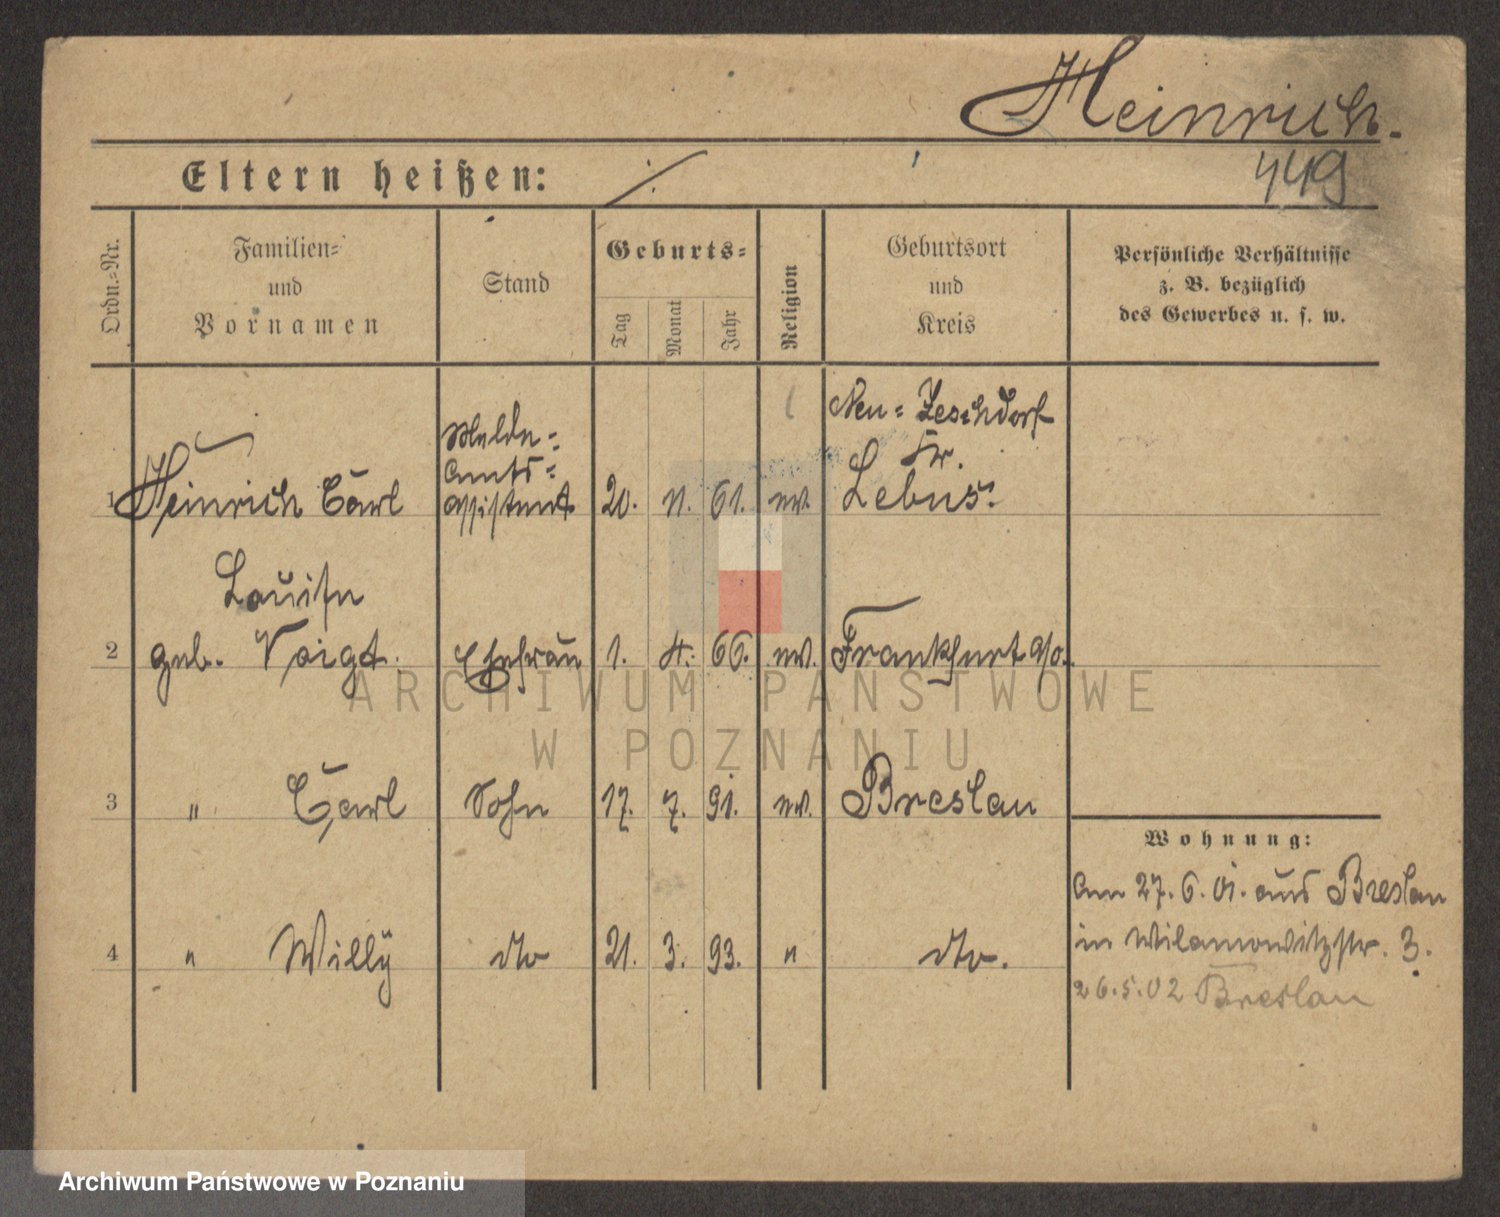 Heinrich.
449
Eltern heißen: ./.
Ordn.-Nr.
Familien-
und
Vornamen
Stand
Geburts-
Tag
Monat
Jahr
Religion
Geburtsort
und
Kreis
Persönliche Verhältnisse
z. B. bezüglich
des Gewerbes u. s. w.
Melde-
Amts-
1 Heinrich Carl Assistent 20. 11. 61. ev.
Neu-Zeschdorf
Kr.
Lebus.
Louise
2 geb. Voigt. Ehefrau 1. 4. 66. ev. Frankfurt a/o.
3 " Carl Sohn 17. 7. 91. ev. Breslau
4 " Willÿ dto 21. 3. 93. " dto.
Wohnung:
Am 27. 6. 01. aus Breslau
in Wilamowitzstr. 3.
26.5.02 Breslau
ARCHIWUM PAŃSTWOWE
W POZNANIU
Archiwum Państwowe w Poznaniu